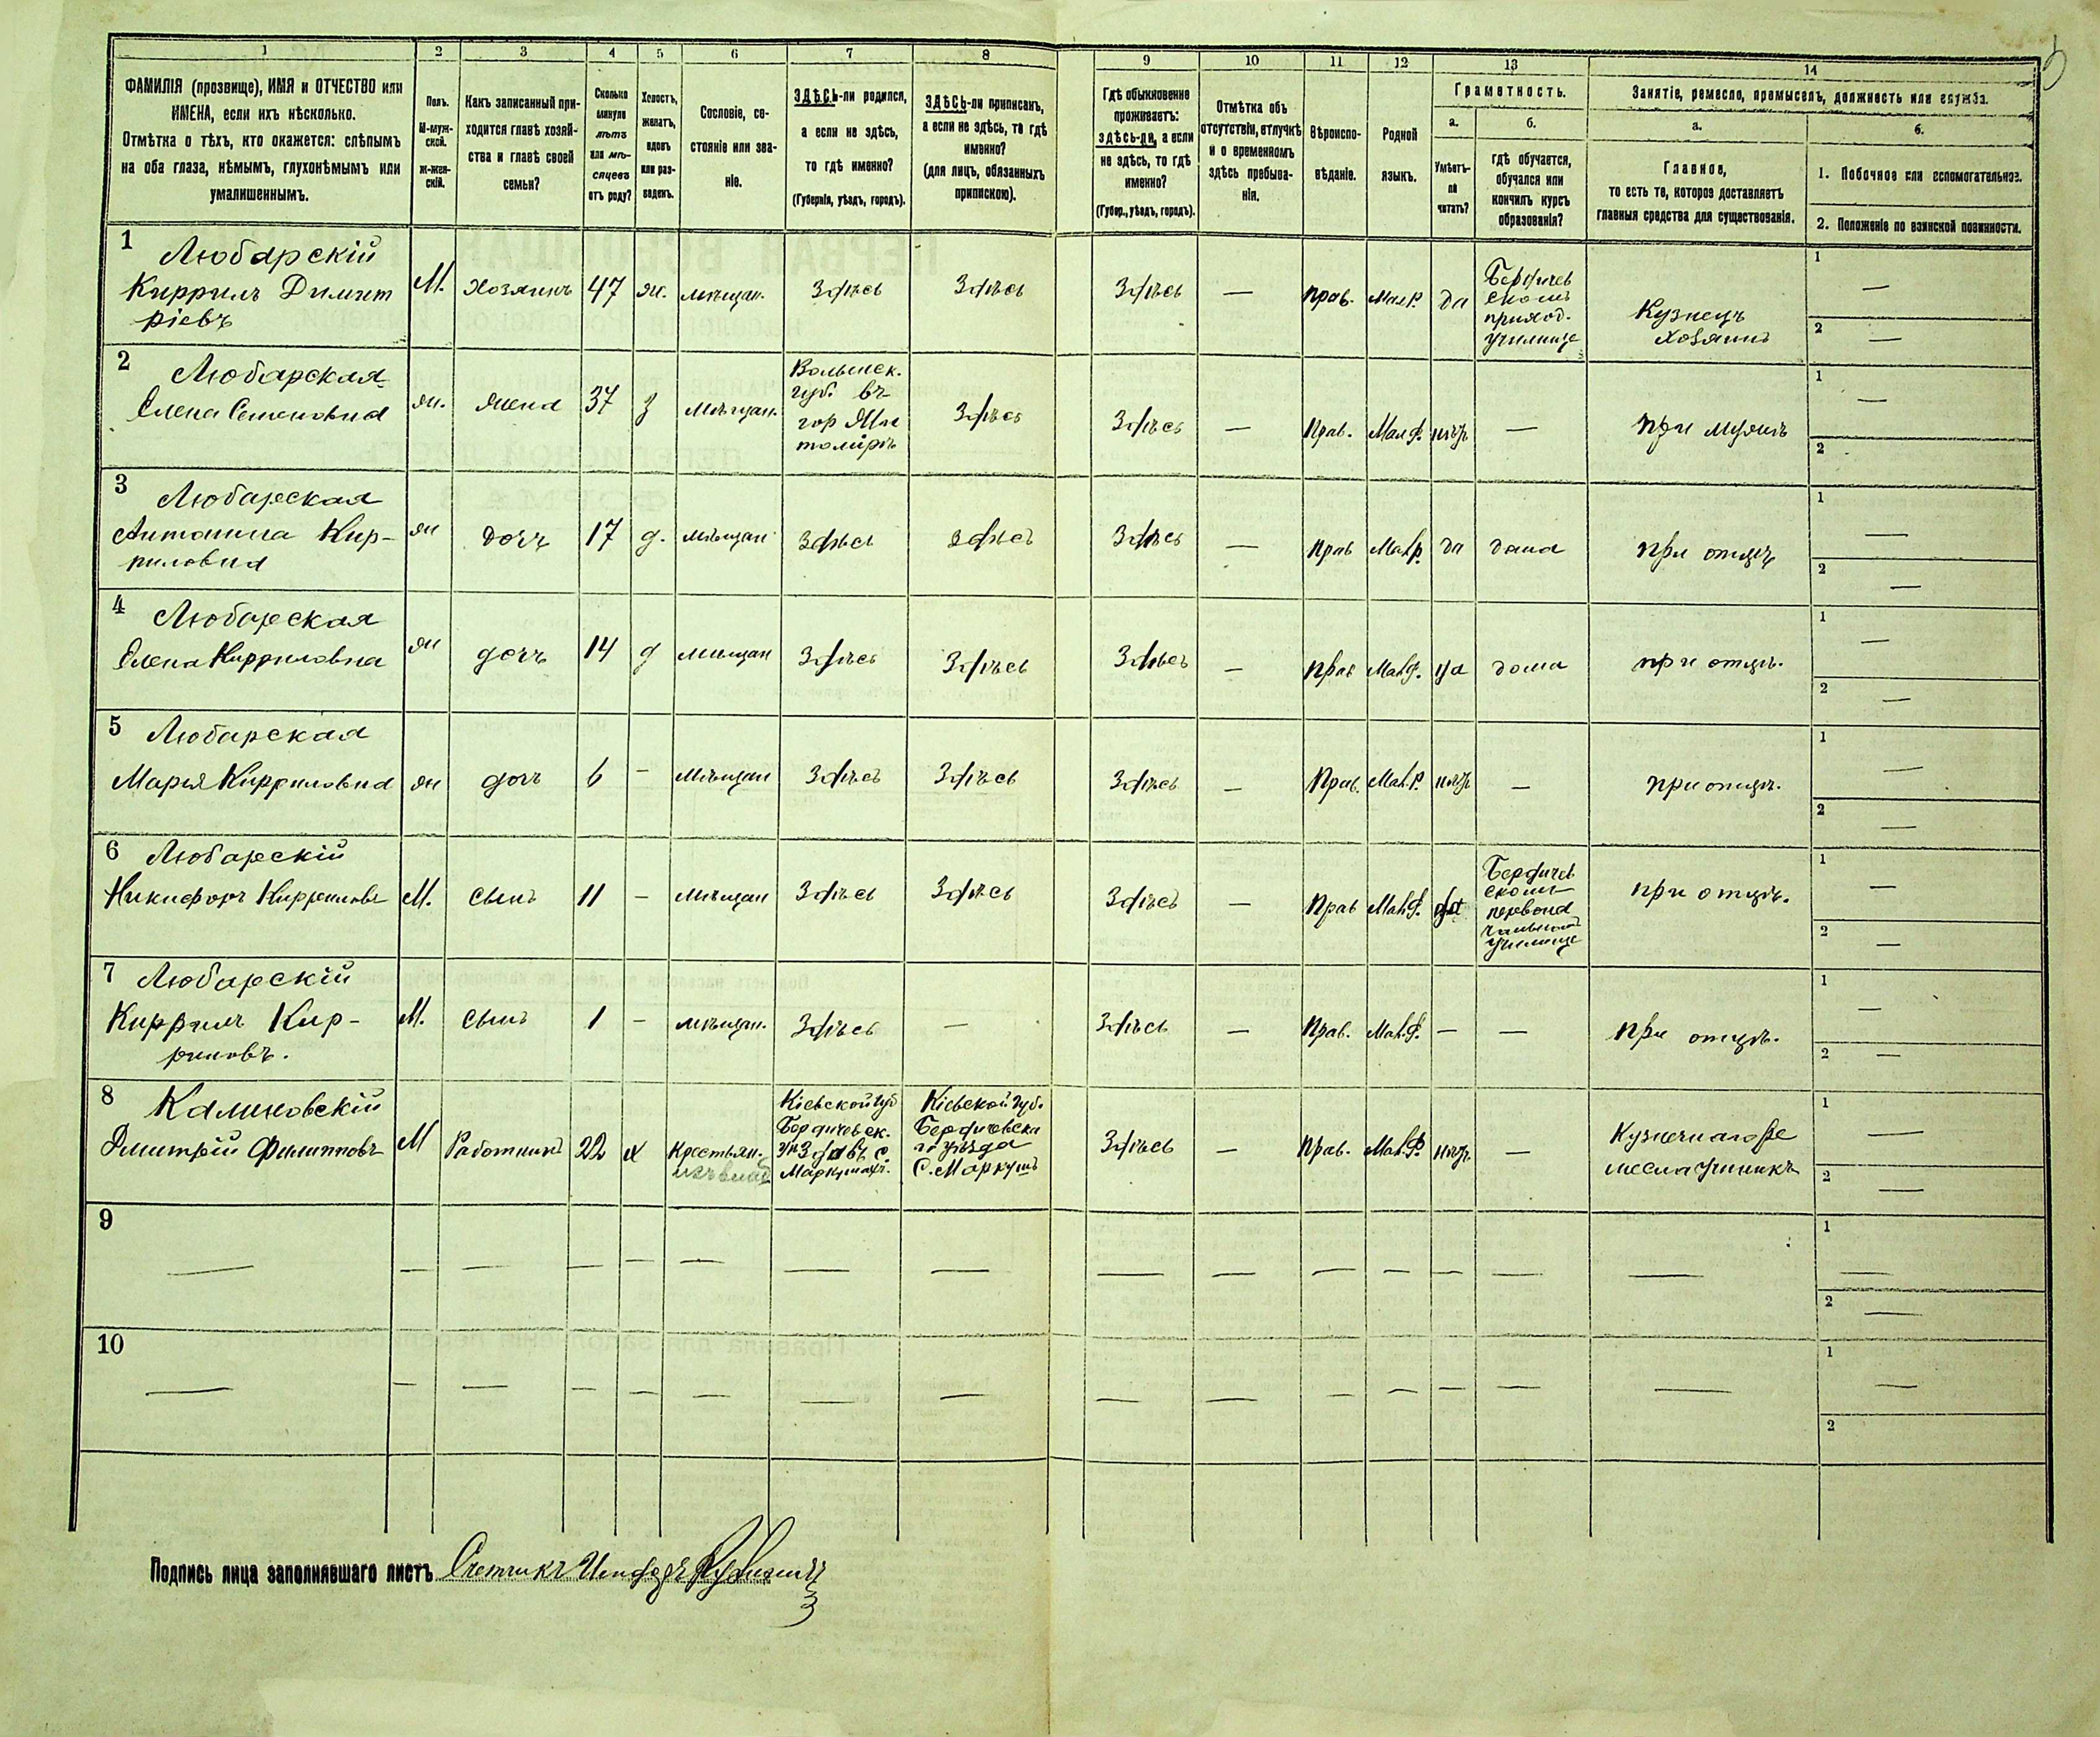 1 2 3 4 5 6 7 8 9 10 11 12 13 14
ФАМИЛІЯ (прозвище), ИМЯ и ОТЧЕСТВО или
ИМЕНА, если ихъ нѣсколько.
Отмѣтка о тѣхъ, кто окажется: слѣпымъ
на оба глаза, нѣмымъ, глухонѣмымъ или
умалишеннымъ.
Полъ.
М-муж-
ской.
Ж-жен-
скій.
Какъ записанный при-
ходится главѣ хозяй-
ства и главѣ своей
семьи?
Сколько
минуло
лѣтъ
или мѣ-
сяцевъ
отъ роду?
Холостъ,
женатъ,
вдовъ
или раз-
веденъ.
Сословіе, со-
стояніе или зва-
ніе.
ЗДѢСЬ-ли родился,
а если не здѣсь,
то гдѣ именно?
(Губернія, уѣздъ, городъ).
ЗДѢСЬ-ли приписанъ,
а если не здѣсь, то гдѣ
именно?
(для лицъ, обязанныхъ
припискою).
Гдѣ обыкновенно
проживаетъ:
здѣсь-ли, а если
не здѣсь, то гдѣ
именно?
(Губер., уѣздъ, городъ).
Отмѣтка объ
отсутствіи, отлучкѣ
и о временномъ
здѣсь пребыва-
ніи.
Вѣроиспо-
вѣданіе.
Родной
языкъ.
Грамотность.
а.
Умѣетъ-
ли
читать?
б.
гдѣ обучается,
обучался или
кончилъ курсъ
образованія?
Занятіе, ремесло, промыселъ, должность или служба.
а.
Главное,
то есть то, которое доставляетъ
главныя средства для существованія.
б.
1. Побочное или вспомогательное.
2. Положеніе по воинской повинности.
1 Любарскій
Киррилъ Димит
ріевъ
М. Хозяинъ 47 ж. мѣщан. Здѣсь Здѣсь Здѣсь — прав. Мал.Р. да
Бердичев
скомъ
приход.
училище
Кузнецъ
Хозяинъ
1 —
2 —
2 Любарская
Елена Семеновна
ж. Жена 37 з мѣщан.
Волынск.
губ. въ
гор Жи
томірѣ
Здѣсь Здѣсь — Прав. Мал.Р. нѣтъ — при мужѣ
1 —
2
3 Любарская
Антонина Кир-
риловна
ж дочь 17 д. мѣщан Здѣсь Здѣсь Здѣсь — Прав Мал.р. да дома при отцѣ
1 —
2 —
4 Любарская
Елена Кирриловна
ж дочь 14 д мѣщан Здѣсь Здѣсь Здѣсь — Прав Мал.Р. да дома при отцѣ.
1 —
2 —
5 Любарская
Марья Кирриловна
ж дочь 6 — мѣщан Здѣсь Здѣсь Здѣсь — Прав. Мал.Р. нѣтъ — при отцѣ.
1 —
2 —
6 Любарскій
Никифоръ Кирриловъ
М. сынъ 11 — мѣщан Здѣсь Здѣсь Здѣсь — Прав Мал.Р. да
Бердичев
ском
первона
чальномъ
училище
при отцѣ.
1 —
2 —
7 Любарскій
Киррилъ Кир-
риловъ.
М. сынъ 1 — мѣщан. Здѣсь — Здѣсь — Прав. Мал.Р. — — при отцѣ.
1 —
2 —
8 Калиновскій
Дмитрій Филипповъ
М Работникъ 22 х
Крестьян.
изъ влад
Кіевской губ
Бердичевск.
уѣзда въ с.
Маркушахъ.
Кіевской губ.
Бердичевска
го уѣзда
С. Маркушъ
Здѣсь — Прав. Мал.Р. нѣтъ —
Кузнечнаго ре
месла ученикъ
1 —
2 —
9 — — — — — — — — — — — — — — —
1 —
2 —
10 — — — — — — — — — — — — — — —
1 —
2
Подпись лица заполнявшаго листъ Счетчикъ